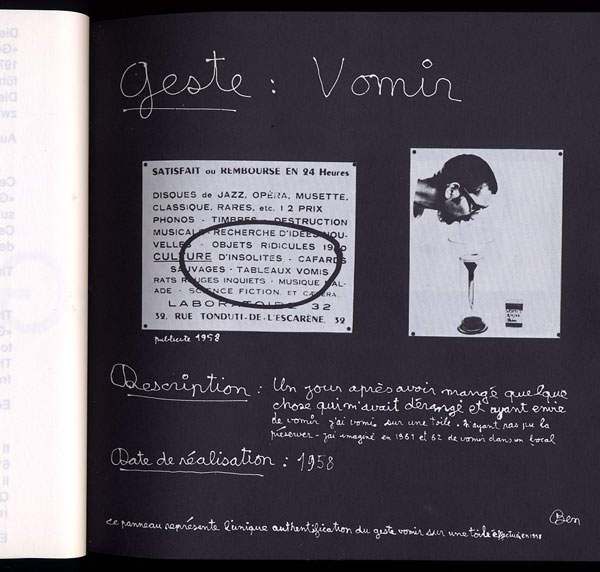 geste : Vomir
SATISFAIT ou REMBOURSE EN 24 Heures
DISQUES de JAZZ, OPÉRA, MUSETTE,
CLASSIQUE, RARES, etc. 1 2 PRIX
PHONOS - TIMBRES - DESTRUCTION
MUSICALE - RECHERCHE D'IDÉES NOU-
VELLES - OBJETS RIDICULES
CULTURE D'INSOLITES - CAFARDS
SAUVAGES - TABLEAUX VOMIS
RATS ROUGES INQUIETS - MUSIQUE MAL-
ADE - SCIENCE FICTION, ET CÆTERA.
LABORATOIRE 32
32, RUE TONDUTI-DE-L'ESCARÈNE, 32
publicité 1958
Description : Un jour après avoir mangé quelque
chose qui m'avait dérangé et ayant envie
de vomir j'ai vomi sur une toile. N'ayant pas pu la
préserver - j'ai imaginé en 1961 et 62 de vomir dans un bocal
Date de réalisation : 1958
Ben
ce panneau représente l'unique authentification du geste vomir sur une toile effectué en 1958